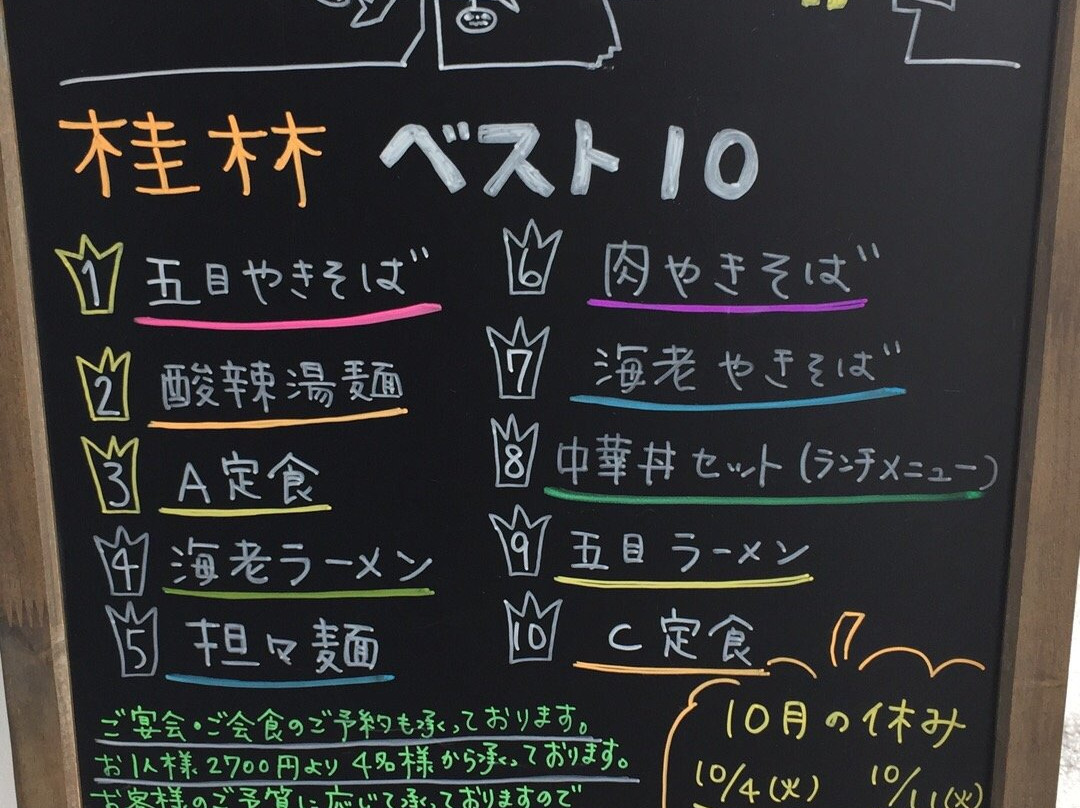 桂林 ベスト10
1 五目やきそば
2 酸辣湯麺
3 A定食
4 海老ラーメン
5 担々麺
6 肉やきそば
7 海老やきそば
8 中華丼セット(ランチメニュー)
9 五目ラーメン
10 C定食
ご宴会・ご会食のご予約も承っております。
お1人様2700円より4名様から承っております。
お客様のご予算に応じて承っておりますので
10月の休み
10/4(火) 10/11(火)